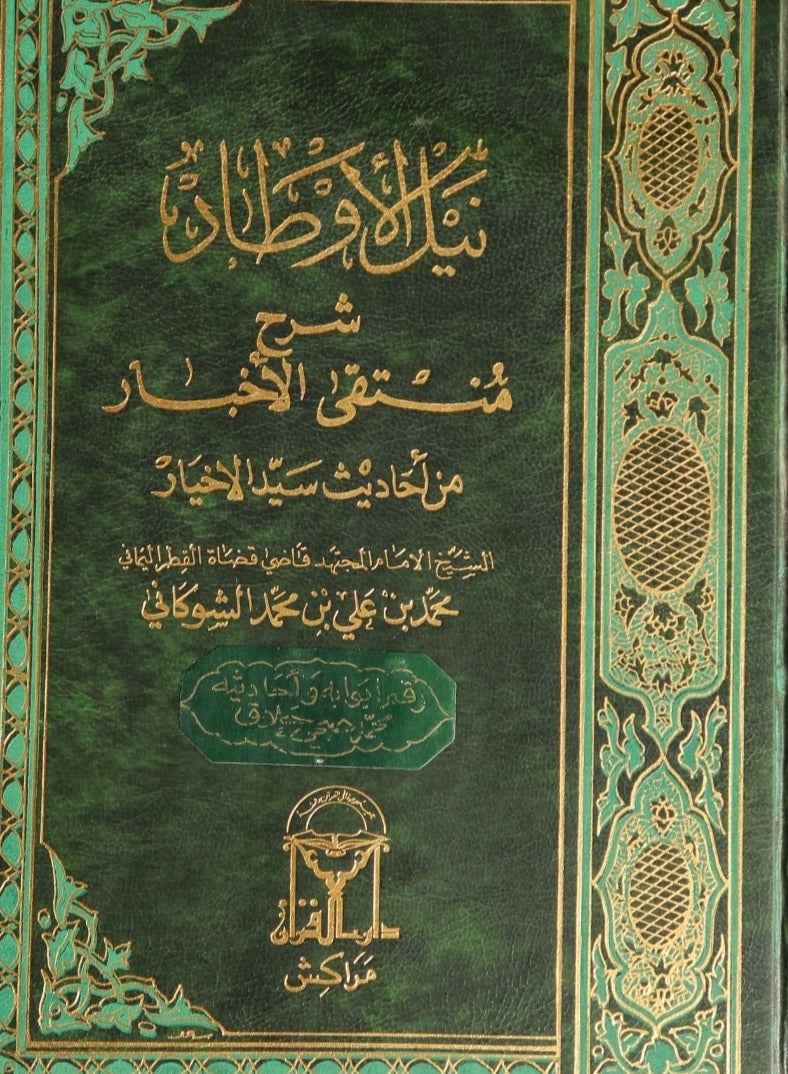 نيل الأوطار
شرح
منتقى الأخبار
من أحاديث سيد الأخيار
الشيخ الإمام المجتهد قاضي قضاة القطر اليماني
محمد بن علي بن محمد الشوكاني
رقم أبوابه وأحاديثه
محمد صبحي حلاق
دار القرآن
مراكش